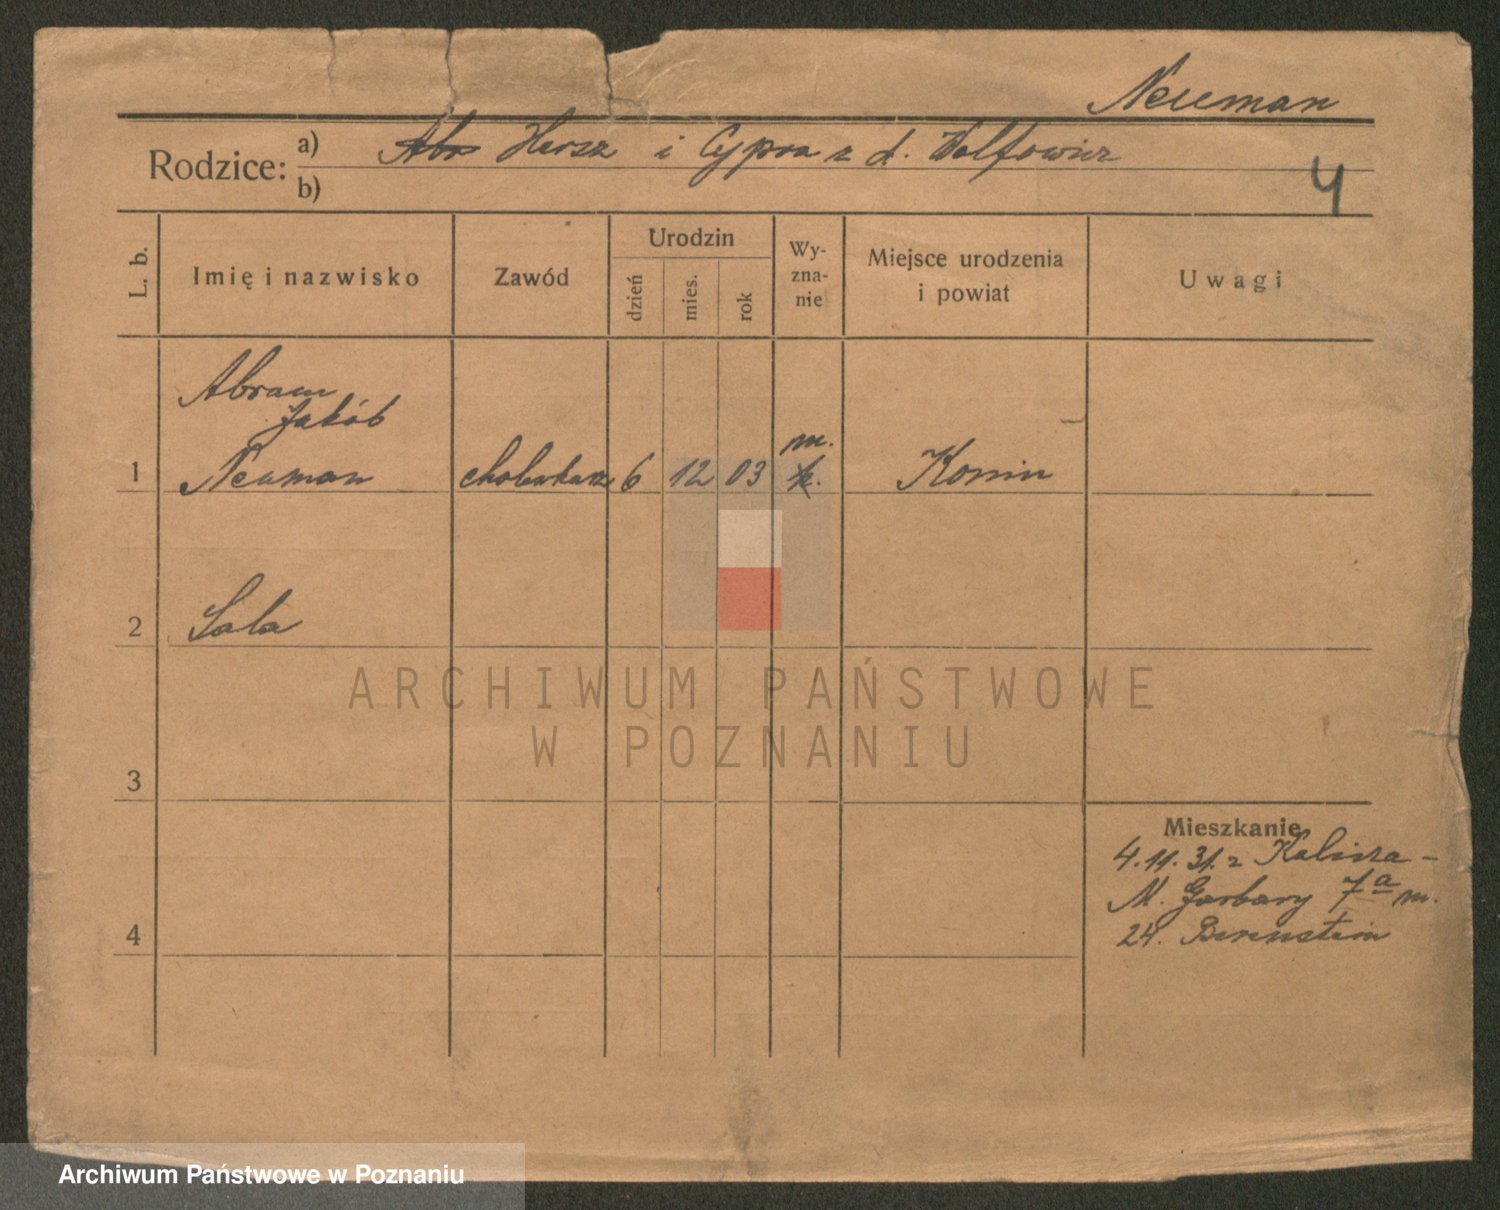 Neuman
Rodzice: a) Abr Hersz i Cypra z d. Wolfowicz
b)
4
L. b. Imię i nazwisko Zawód Urodzin dzień mies. rok Wy-zna-nie Miejsce urodzenia i powiat Uwagi
Abram
Jakób
m.
1 Neuman cholewkarz 6 12 03 k. Konin
2 Sala
ARCHIWUM PAŃSTWOWE
W POZNANIU
3
Mieszkanie
4.11.31. z Kalisza -
M. Garbary 7a m.
4
24. Berenstein
Archiwum Państwowe w Poznaniu